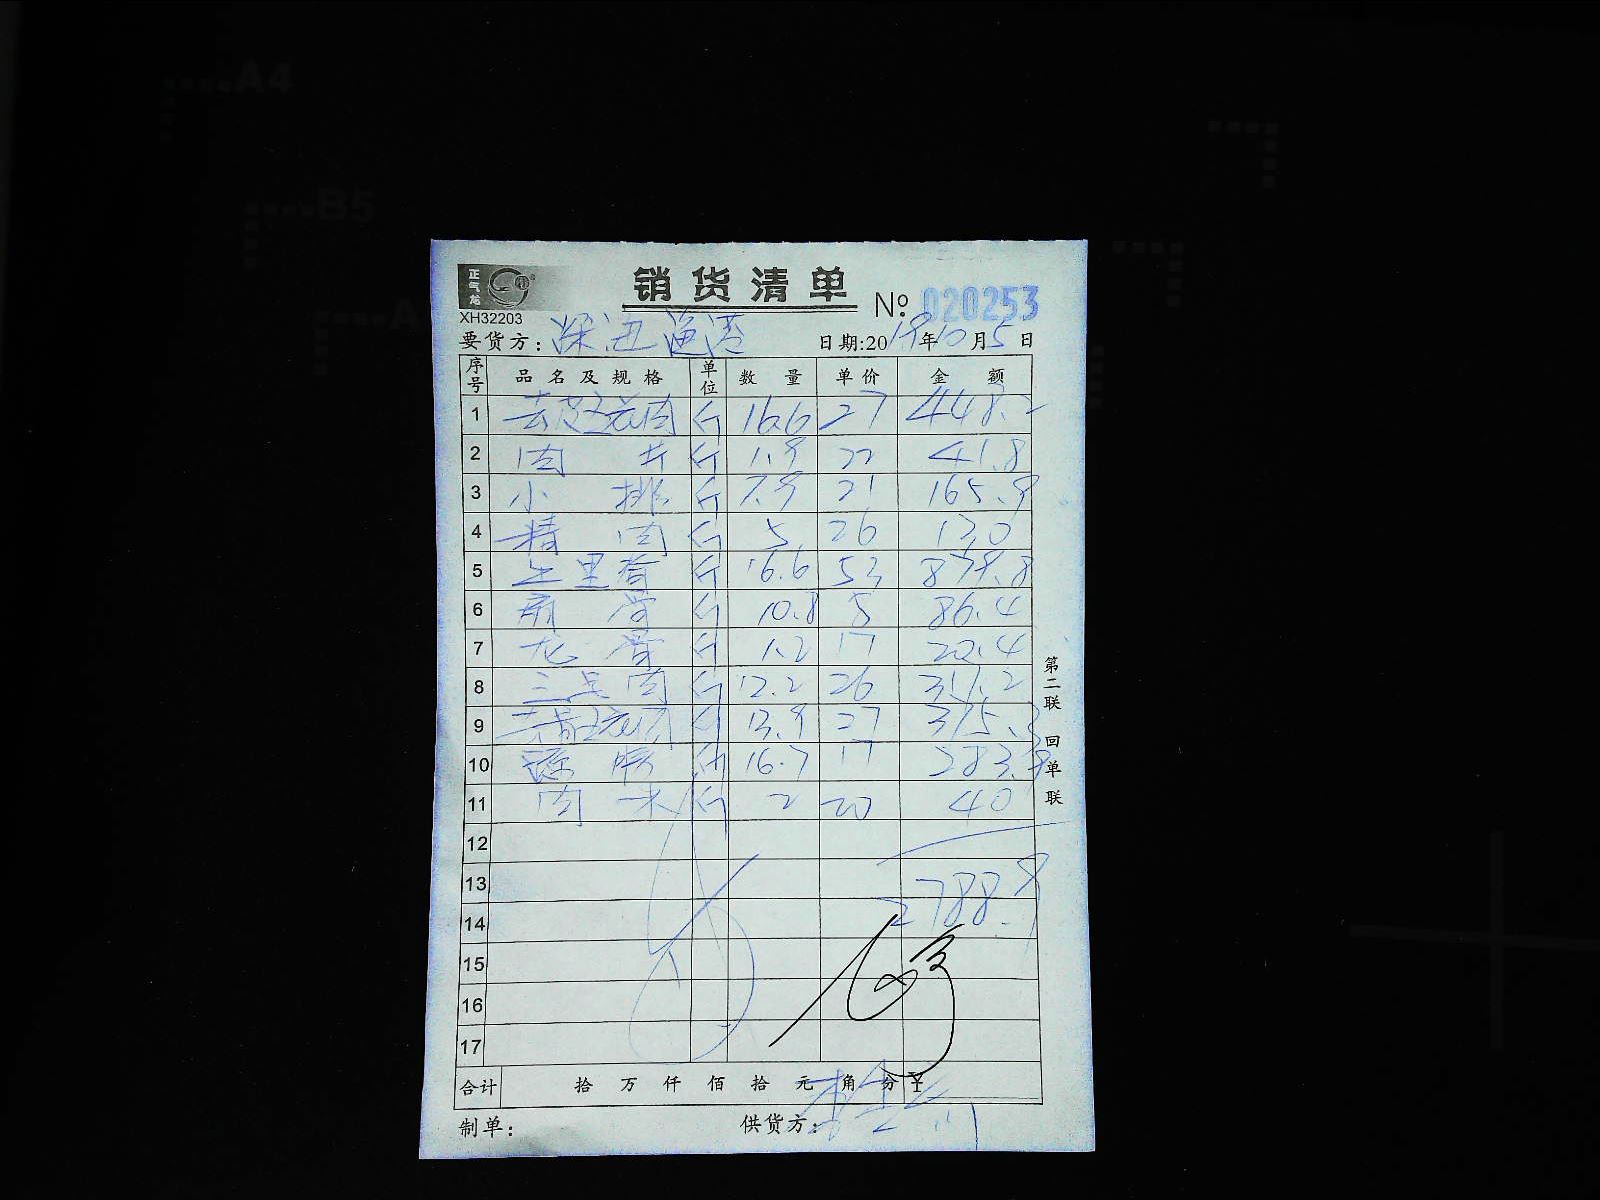 A4
B5
A
正气龙
XH32203
销货清单
№ 020253
要货方: 深 渔港
日期:2019年10月5日
序号 品名及规格 单位 数量 单价 金额
1 去皮 肉 斤 16.6 27 448.2
2 肉 斤 1.9 22 41.8
3 小排 斤 7.9 21 165.9
4 精肉 斤 5 26 130
5 里脊 斤 16.6 53 879.8
6 骨 斤 10.8 8 86.4
7 龙骨 斤 1.2 17 20.4
8 三 肉 斤 12.2 26 317.2
9 去 肉 斤 13.9 27 375.3
10 斤 16.7 17 283.9
11 肉 斤 2 20 40
12
13
2788.9
14
15
16
17
合计 拾 万 仟 佰 拾 元 角 分 ¥
制单: 供货方:
第二联 回单联